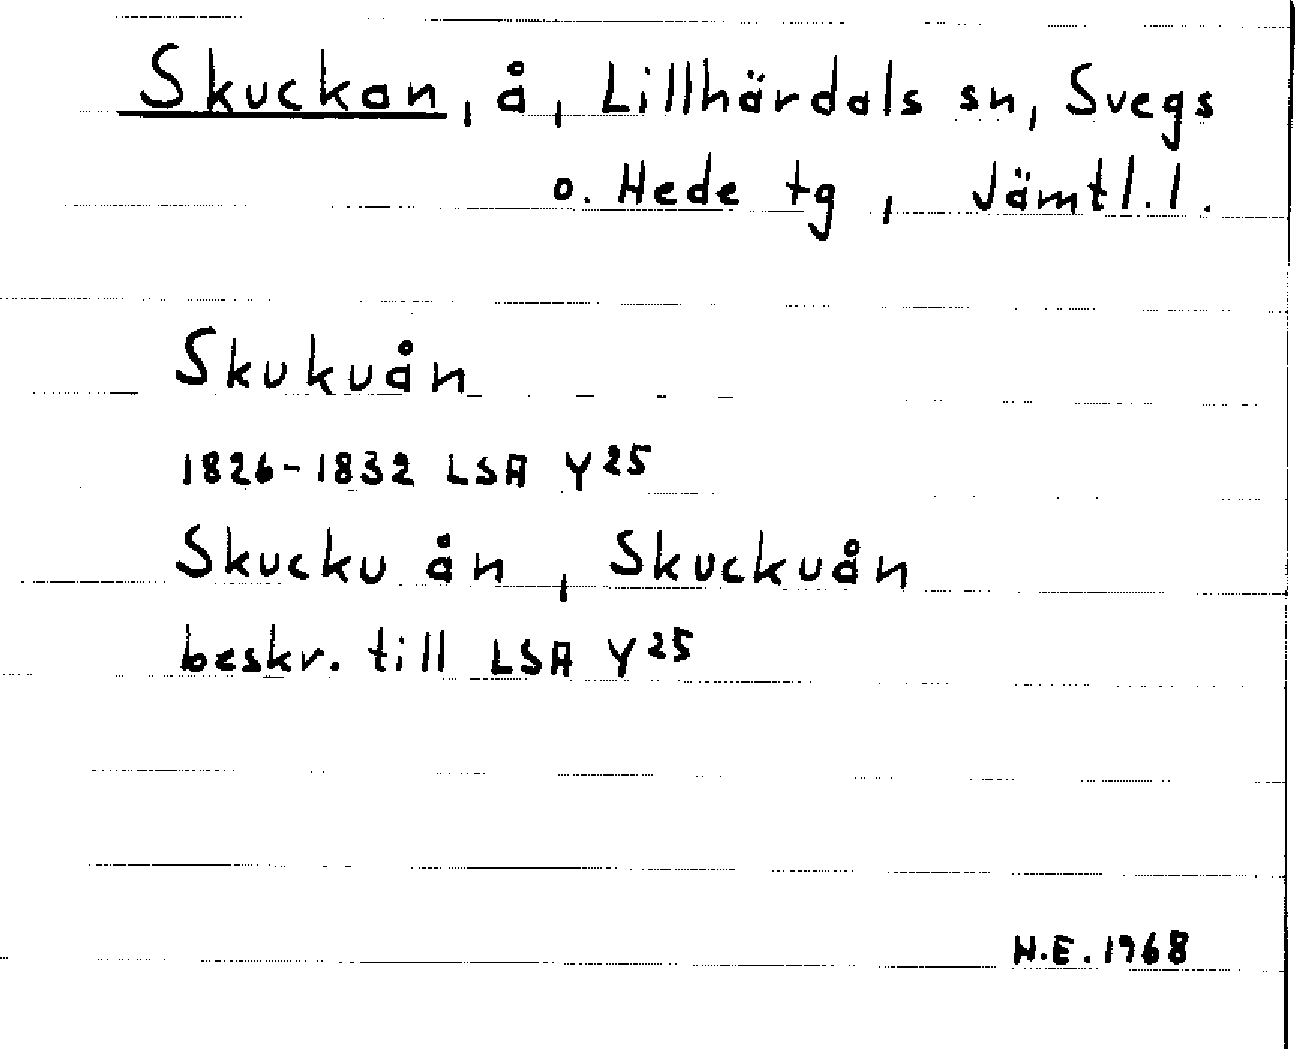 Skuckan, å, Lillhärdals sn, Svegs
o. Hede tg, Jämtl.l.
Skukuån
1826-1832 LSA Y25
Skucku ån, Skuckuån
beskr. till LSA Y25
H.E. 1968